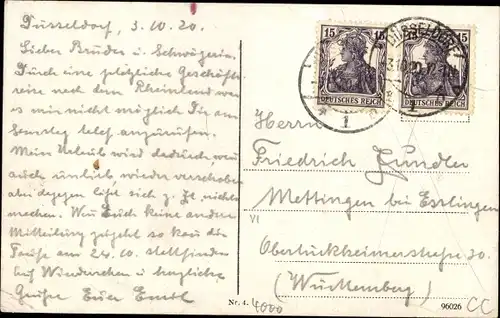 Düsseldorf, 3.10.20.
Lieber Bruder u. Schwägerin.
Durch eine plötzliche Geschäfts-
reise nach dem Rheinland war
es mir nicht möglich Dir am
Samstag telef. anzurufen.
Mein Urlaub wird dadurch wohl
auch wieder verschoben
dagegen läßt sich z. Zt. nichts
machen. Wenn Euch keine andere
Mitteilung zugeht so kann die
Taufe am 24.10. stattfinden
Auf Wiedersehen u. herzliche
Grüße Euer Emil
15 15
DEUTSCHES REICH DEUTSCHES REICH
DÜSSELDORF
1
Herrn
Friedrich Gundler
Mettingen bei Esslingen
Obertürkheimerstraße 30.
(Württemberg)
VI
Nr. 4.
4000
96026
CC